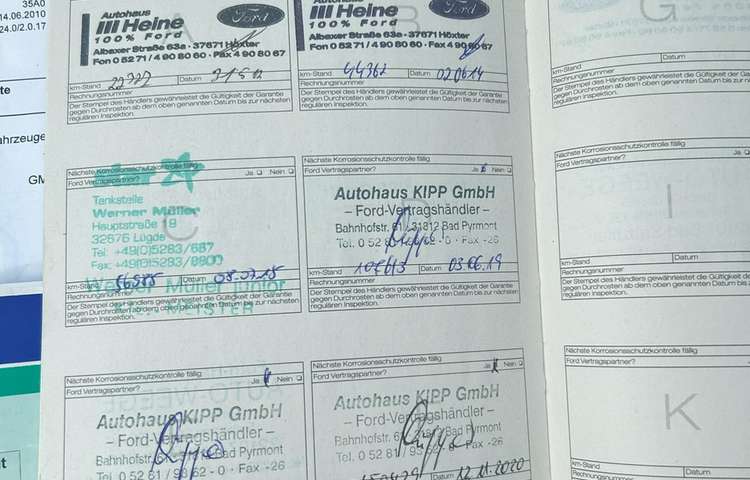 35A0
14.06.2010
24.0/2.0.17
te
ahrzeuge
GM
t
Autohaus
Heine
100% Ford
Ford
Albaxer Straße 63a · 37671 Höxter
Fon 0 52 71 / 4 90 80 60 · Fax 4 90 80 67
km-Stand Datum
Rechnungsnummer
Der Stempel des Händlers gewährleistet die Gültigkeit der Garantie
gegen Durchrosten ab dem oben genannten Datum bis zur nächsten
regulären Inspektion.
B
Heine
100% Ford
Ford
Albaxer Straße 63a · 37671 Höxter
Fon 0 52 71 / 4 90 80 60 · Fax 4 90 80 67
km-Stand 44362 Datum 02.06.14
Rechnungsnummer
Der Stempel des Händlers gewährleistet die Gültigkeit der Garantie
gegen Durchrosten ab dem oben genannten Datum bis zur nächsten
regulären Inspektion.
Nächste Korrosionsschutzkontrolle fällig
Ford Vertragspartner? Ja Nein
star
C
Tankstelle
Werner Müller
Hauptstraße 19
32676 Lügde
Tel: +49(0)5283/687
Fax: +49(0)5283/9900
km-Stand 56585 Datum 08.07.15
Werner Müller junior
Rechnungsnummer
MEISTER
Der Stempel des Händlers gewährleistet die Gültigkeit der Garantie
gegen Durchrosten ab dem oben genannten Datum bis zur nächsten
regulären Inspektion.
Nächste Korrosionsschutzkontrolle fällig
Ford Vertragspartner? Ja Nein
D
Autohaus KIPP GmbH
– Ford-Vertragshändler –
Bahnhofstr. 61 · 31812 Bad Pyrmont
Tel. 0 52 81 -0 · Fax -26
km-Stand Datum 03.06.19
Rechnungsnummer
Der Stempel des Händlers gewährleistet die Gültigkeit der Garantie
gegen Durchrosten ab dem oben genannten Datum bis zur nächsten
regulären Inspektion.
Nächste Korrosionsschutzkontrolle fällig
Ford Vertragspartner? Ja Nein
Autohaus KIPP GmbH
– Ford-Vertragshändler –
Bahnhofstr. Bad Pyrmont
Tel. 0 52 81 / 93 62 - 0 · Fax -26
Nächste Korrosionsschutzkontrolle fällig
Ford Vertragspartner? Ja Nein
Autohaus KIPP GmbH
– Ford-Vertragshändler –
Bahnhofstr. Bad Pyrmont
Tel. 0 52 81 / 93 62 - 0 · Fax -26
12.11.2020
G
km-Stand Datum
Rechnungsnummer
Der Stempel des Händlers gewährleistet die Gültigkeit der
gegen Durchrosten ab dem oben genannten Datum bis zur
regulären Inspektion.
Nächste Korrosionsschutzkontrolle fällig
Ford Vertragspartner?
I
km-Stand Datum
Rechnungsnummer
Der Stempel des Händlers gewährleistet die Gültigkeit der
gegen Durchrosten ab dem oben genannten Datum bis zur
regulären Inspektion.
Nächste Korrosionsschutzkontrolle fällig
Ford Vertragspartner?
K
km-Stand Datum
Rechnungsnummer